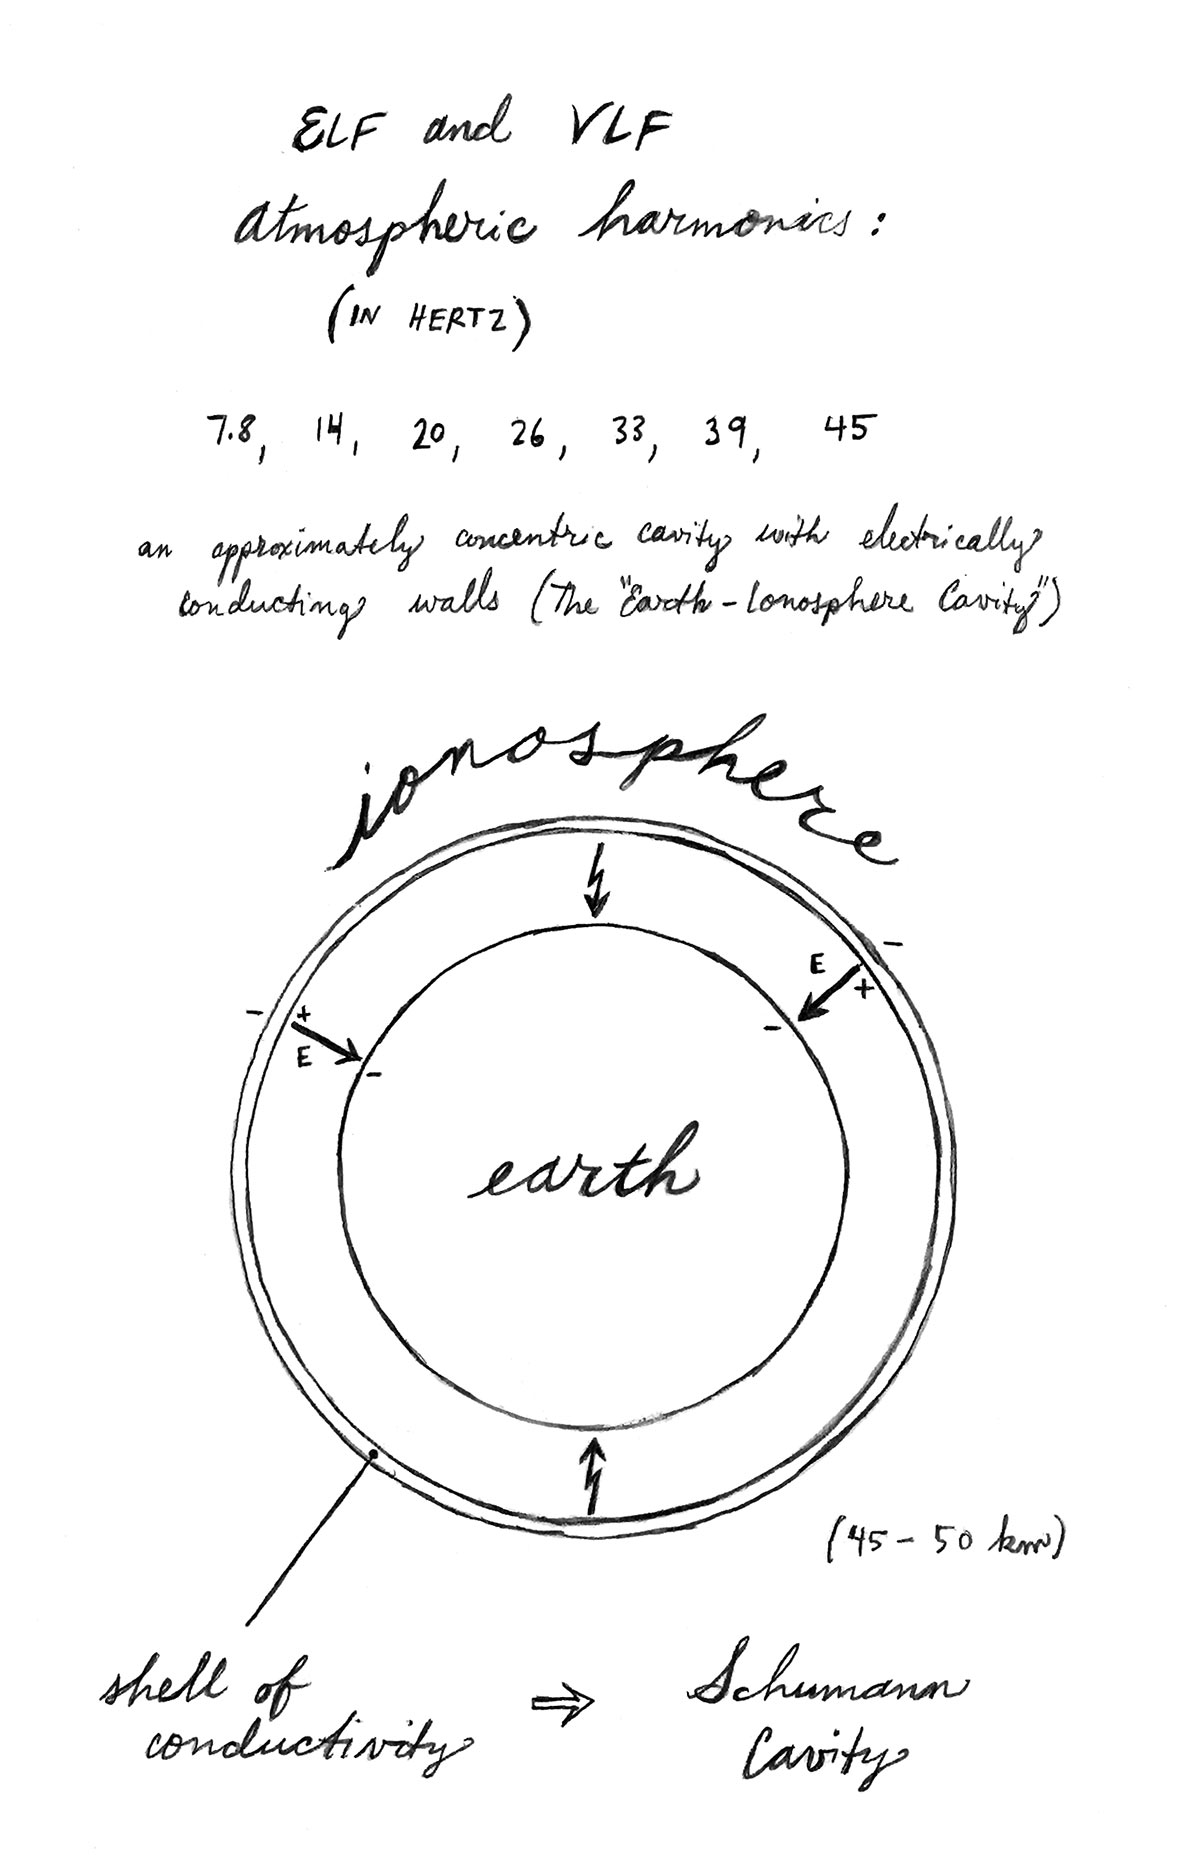 ELF and VLF
atmospheric harmonics:
(IN HERTZ)
7.8, 14, 20, 26, 33, 39, 45
an approximately concentric cavity with electrically
conducting walls (The "Earth-Ionosphere Cavity")
ionosphere
-
E
+
-
- +
E
-
earth
(45-50 km)
shell of
conductivity ⇒ Schumann
Cavity